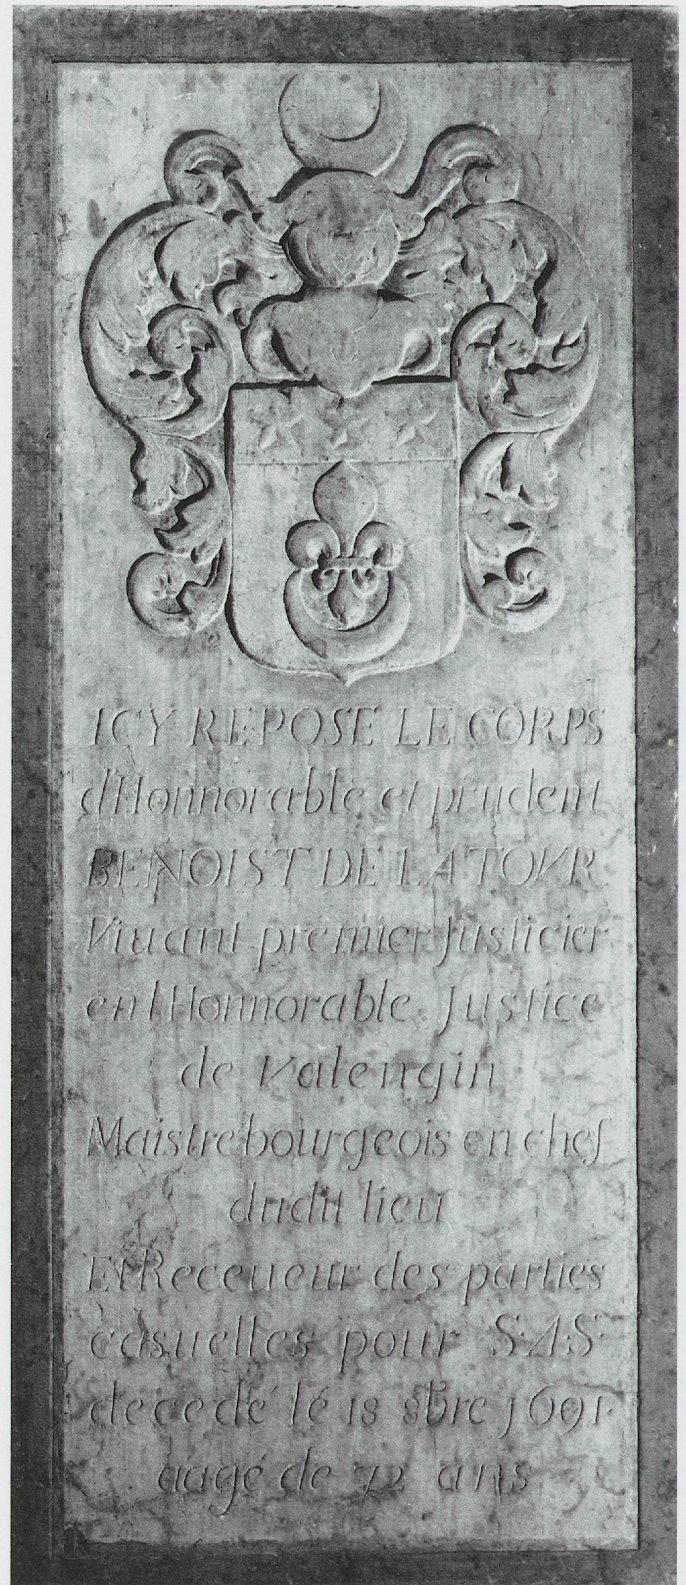 ICY REPOSE LE CORPS
d'Honnorable et prudent
BENOIST DE LA TOVR
Viuant premier Justicier
en l'Honnorable Justice
de Valengin
Maistrebourgeois en chef
dudit lieu
Et Receueur des parties
casuelles pour S·A·S·
decedé lé 18 8bre 1691
aagé de 72 ans